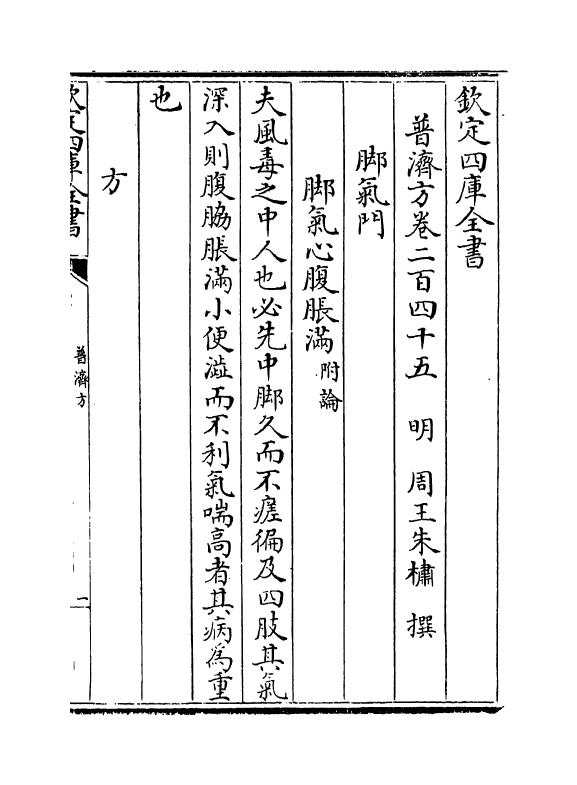 欽定四庫全書
普濟方卷二百四十五　明　周王朱橚　撰
脚氣門
脚氣心腹脹滿附論
夫風毒之中人也必先中脚久而不瘥徧及四肢其氣
深入則腹脇脹滿小便澁而不利氣喘高者其病為重
也
方
欽定四庫全書
普濟方